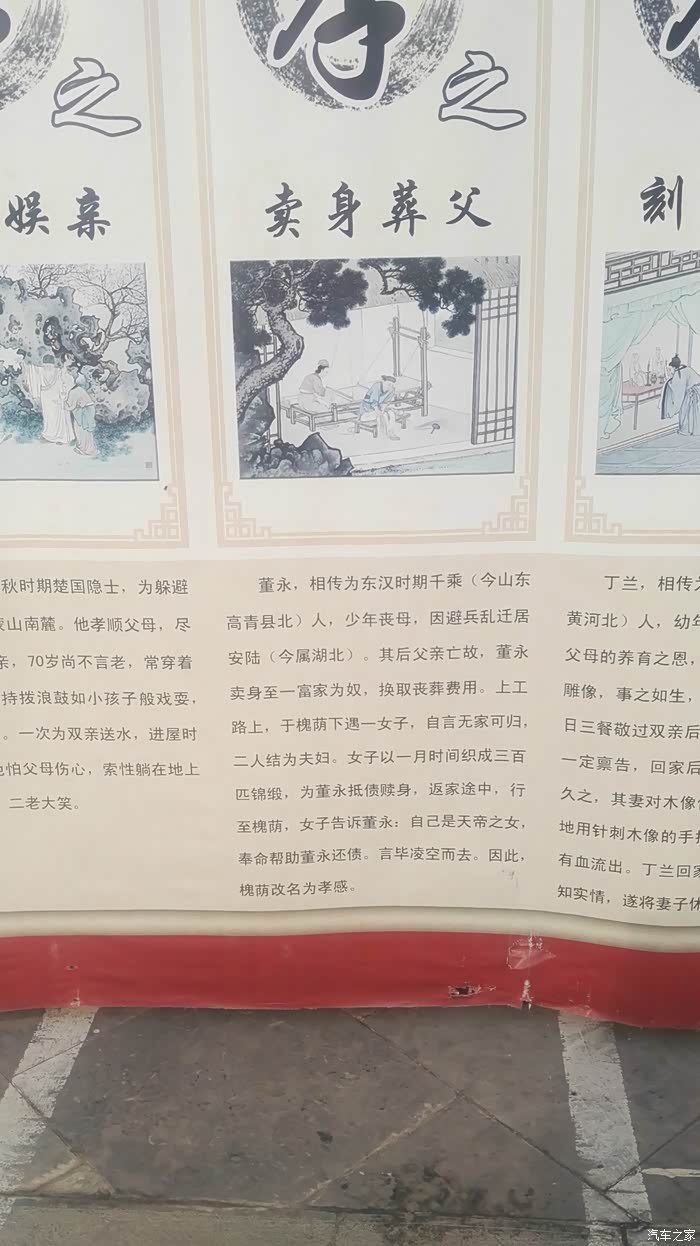 之
娱亲
秋时期楚国隐士，为躲避
山南麓。他孝顺父母，尽
亲，70岁尚不言老，常穿着
持拨浪鼓如小孩子般戏耍，
。一次为双亲送水，进屋时
怕父母伤心，索性躺在地上
二老大笑。
孝之
卖身葬父
董永，相传为东汉时期千乘（今山东
高青县北）人，少年丧母，因避兵乱迁居
安陆（今属湖北）。其后父亲亡故，董永
卖身至一富家为奴，换取丧葬费用。上工
路上，于槐荫下遇一女子，自言无家可归，
二人结为夫妇。女子以一月时间织成三百
匹锦缎，为董永抵债赎身，返家途中，行
至槐荫，女子告诉董永：自己是天帝之女，
奉命帮助董永还债。言毕凌空而去。因此，
槐荫改名为孝感。
刻
丁兰，相传
黄河北）人，幼年
父母的养育之恩，
雕像，事之如生，
日三餐敬过双亲后
一定禀告，回家后
久之，其妻对木像
地用针刺木像的手
有血流出。丁兰回家
知实情，遂将妻子休
汽车之家